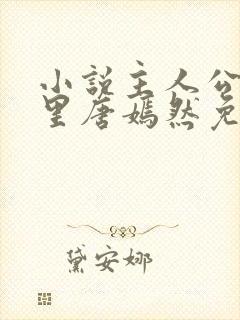 小说主人公
里唐嫣然免
黛安娜